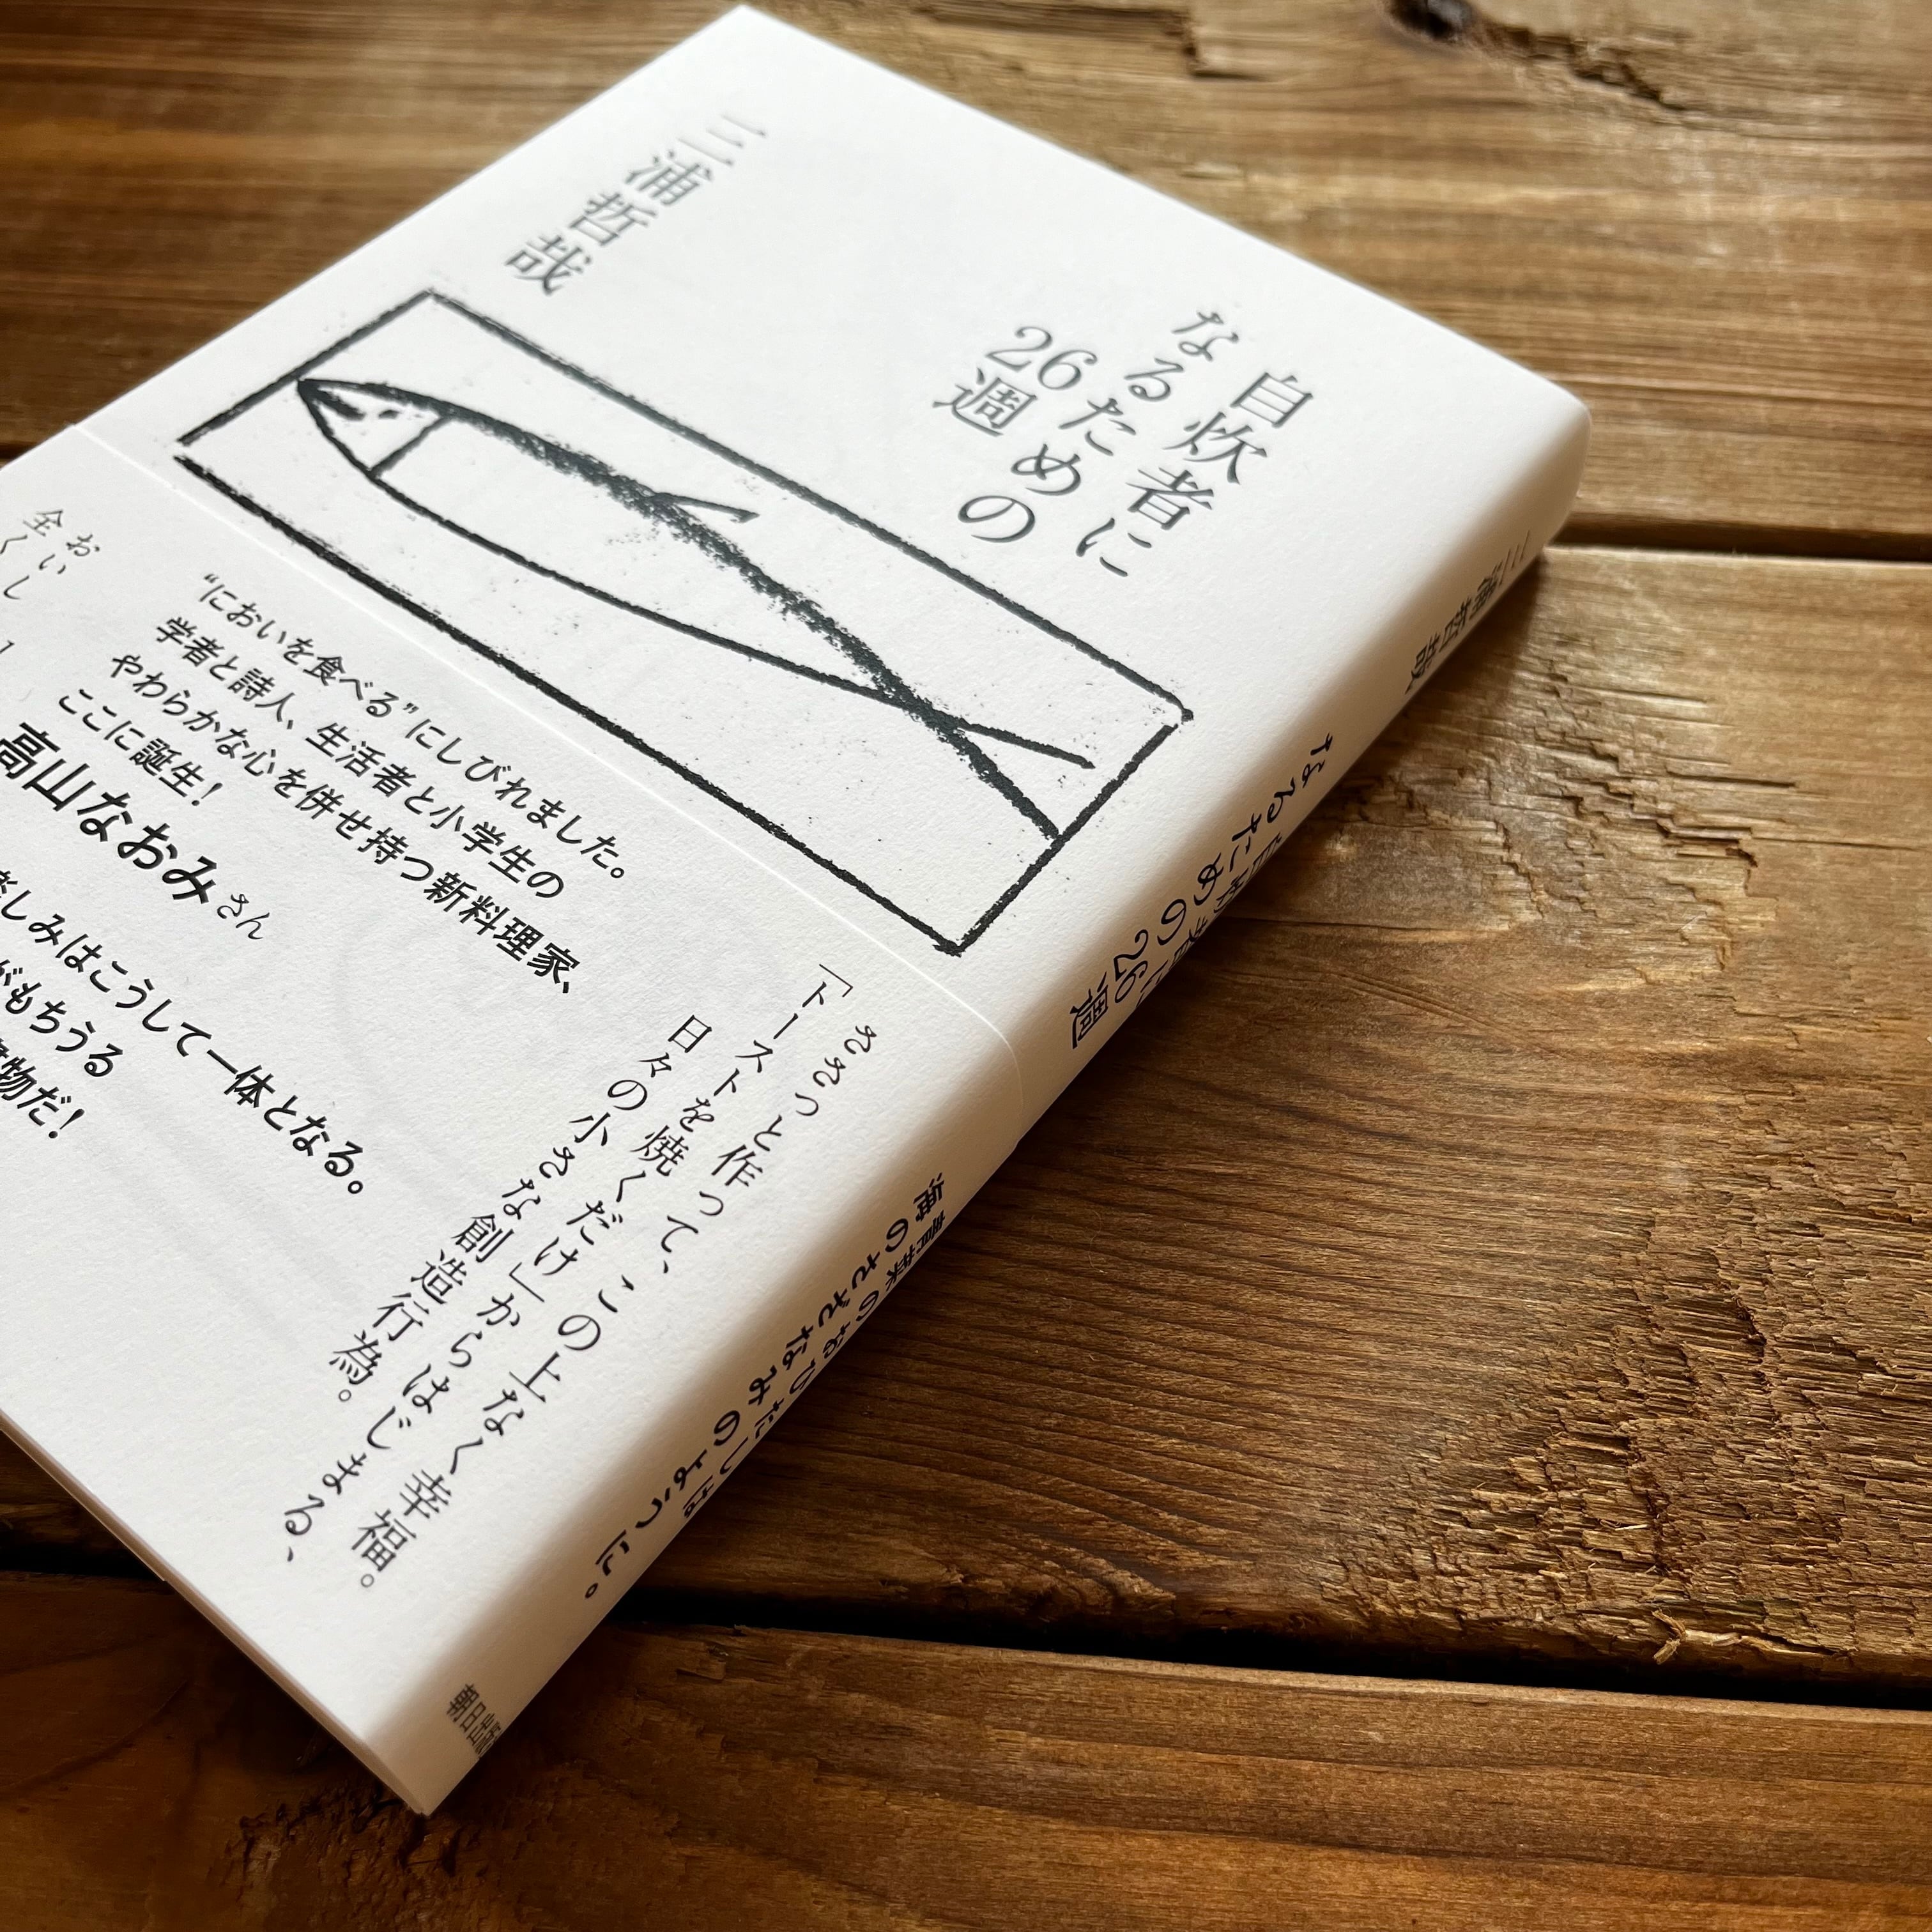 自炊者に
なるための
26週
三浦哲哉
ささっと作って、この上なく幸福。
「トーストを焼くだけ」からはじまる、
日々の小さな創造行為。
“においを食べる”にしびれました。
学者と詩人、生活者と小学生の
やわらかな心を併せ持つ新料理家、
ここに誕生!
高山なおみさん
しみはこうして一体となる。
がもちうる
物だ!
おいし
全くし
三浦哲哉
自炊者に
なるための26週
青菜のおひたしは
海のさざなみのように。
朝日出版